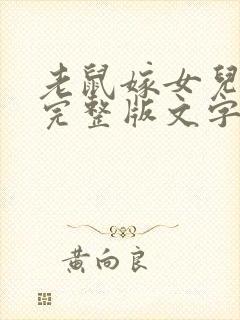 老鼠嫁女兒
完整版文字
黃向良